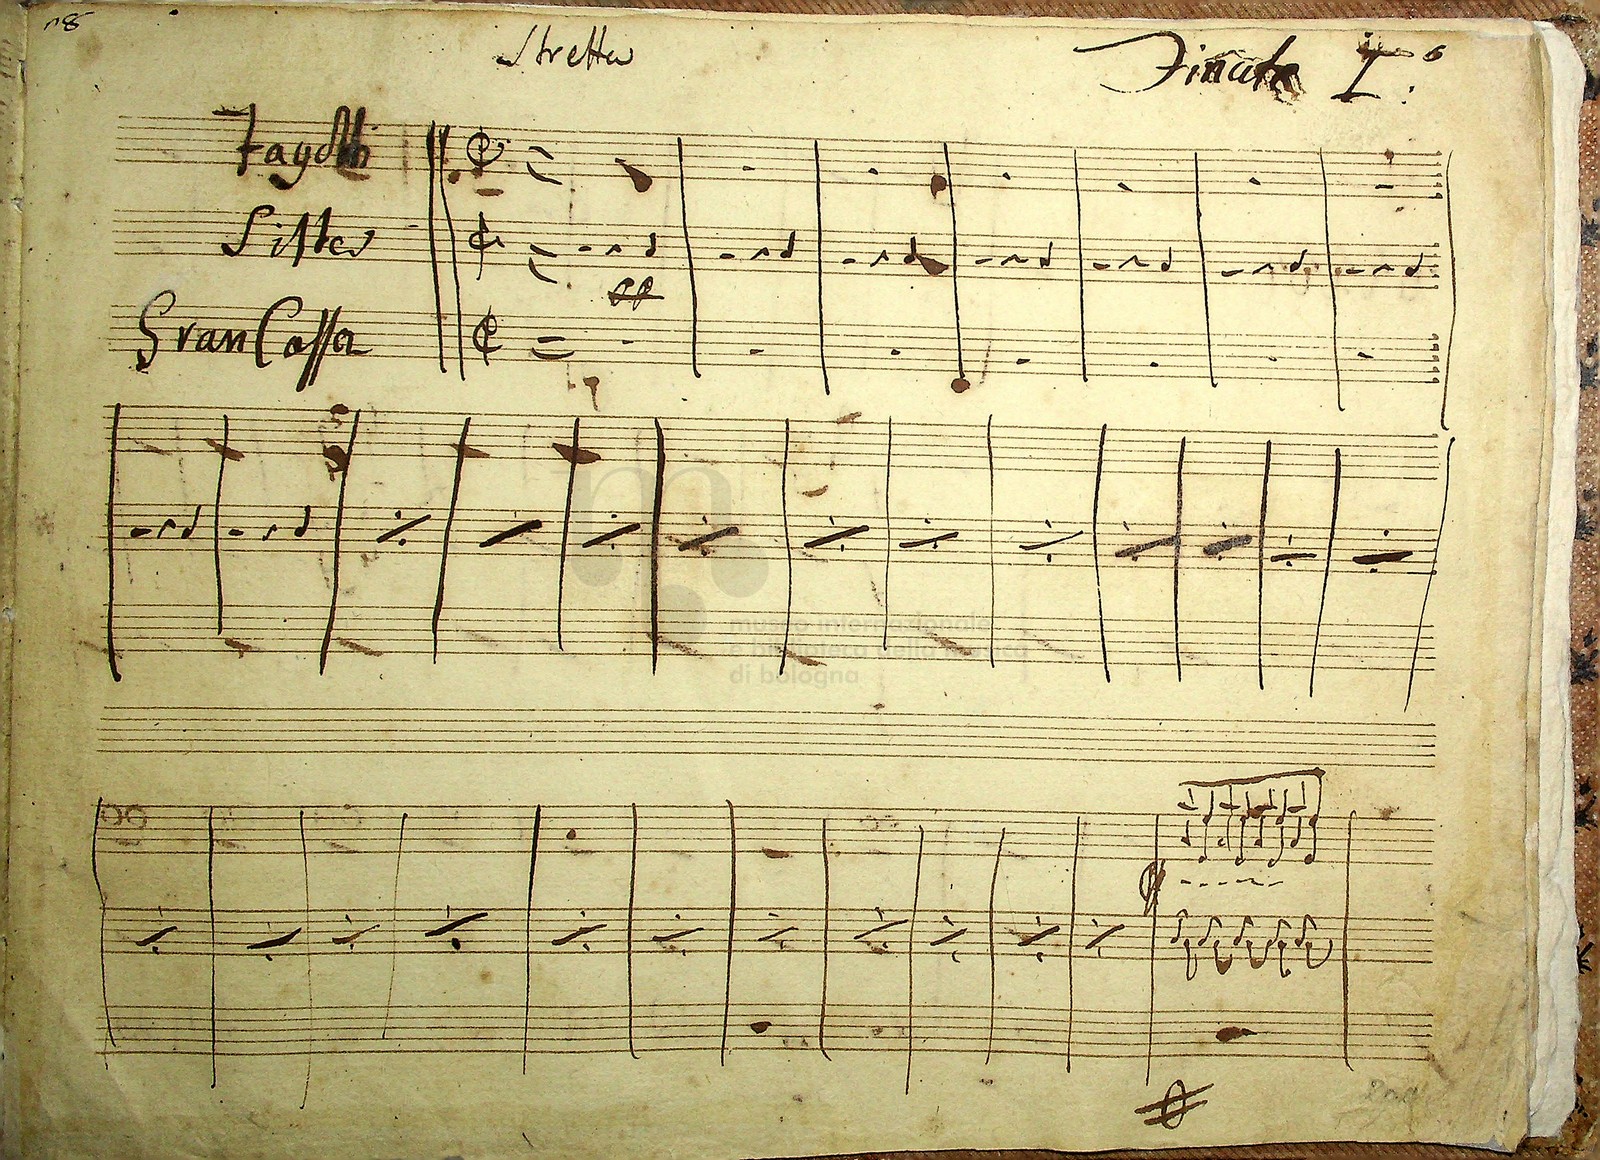 Stretta
Finale I.º
Sistro
Gran Cassa
ff
museo internazionale
e biblioteca della musica
di bologna